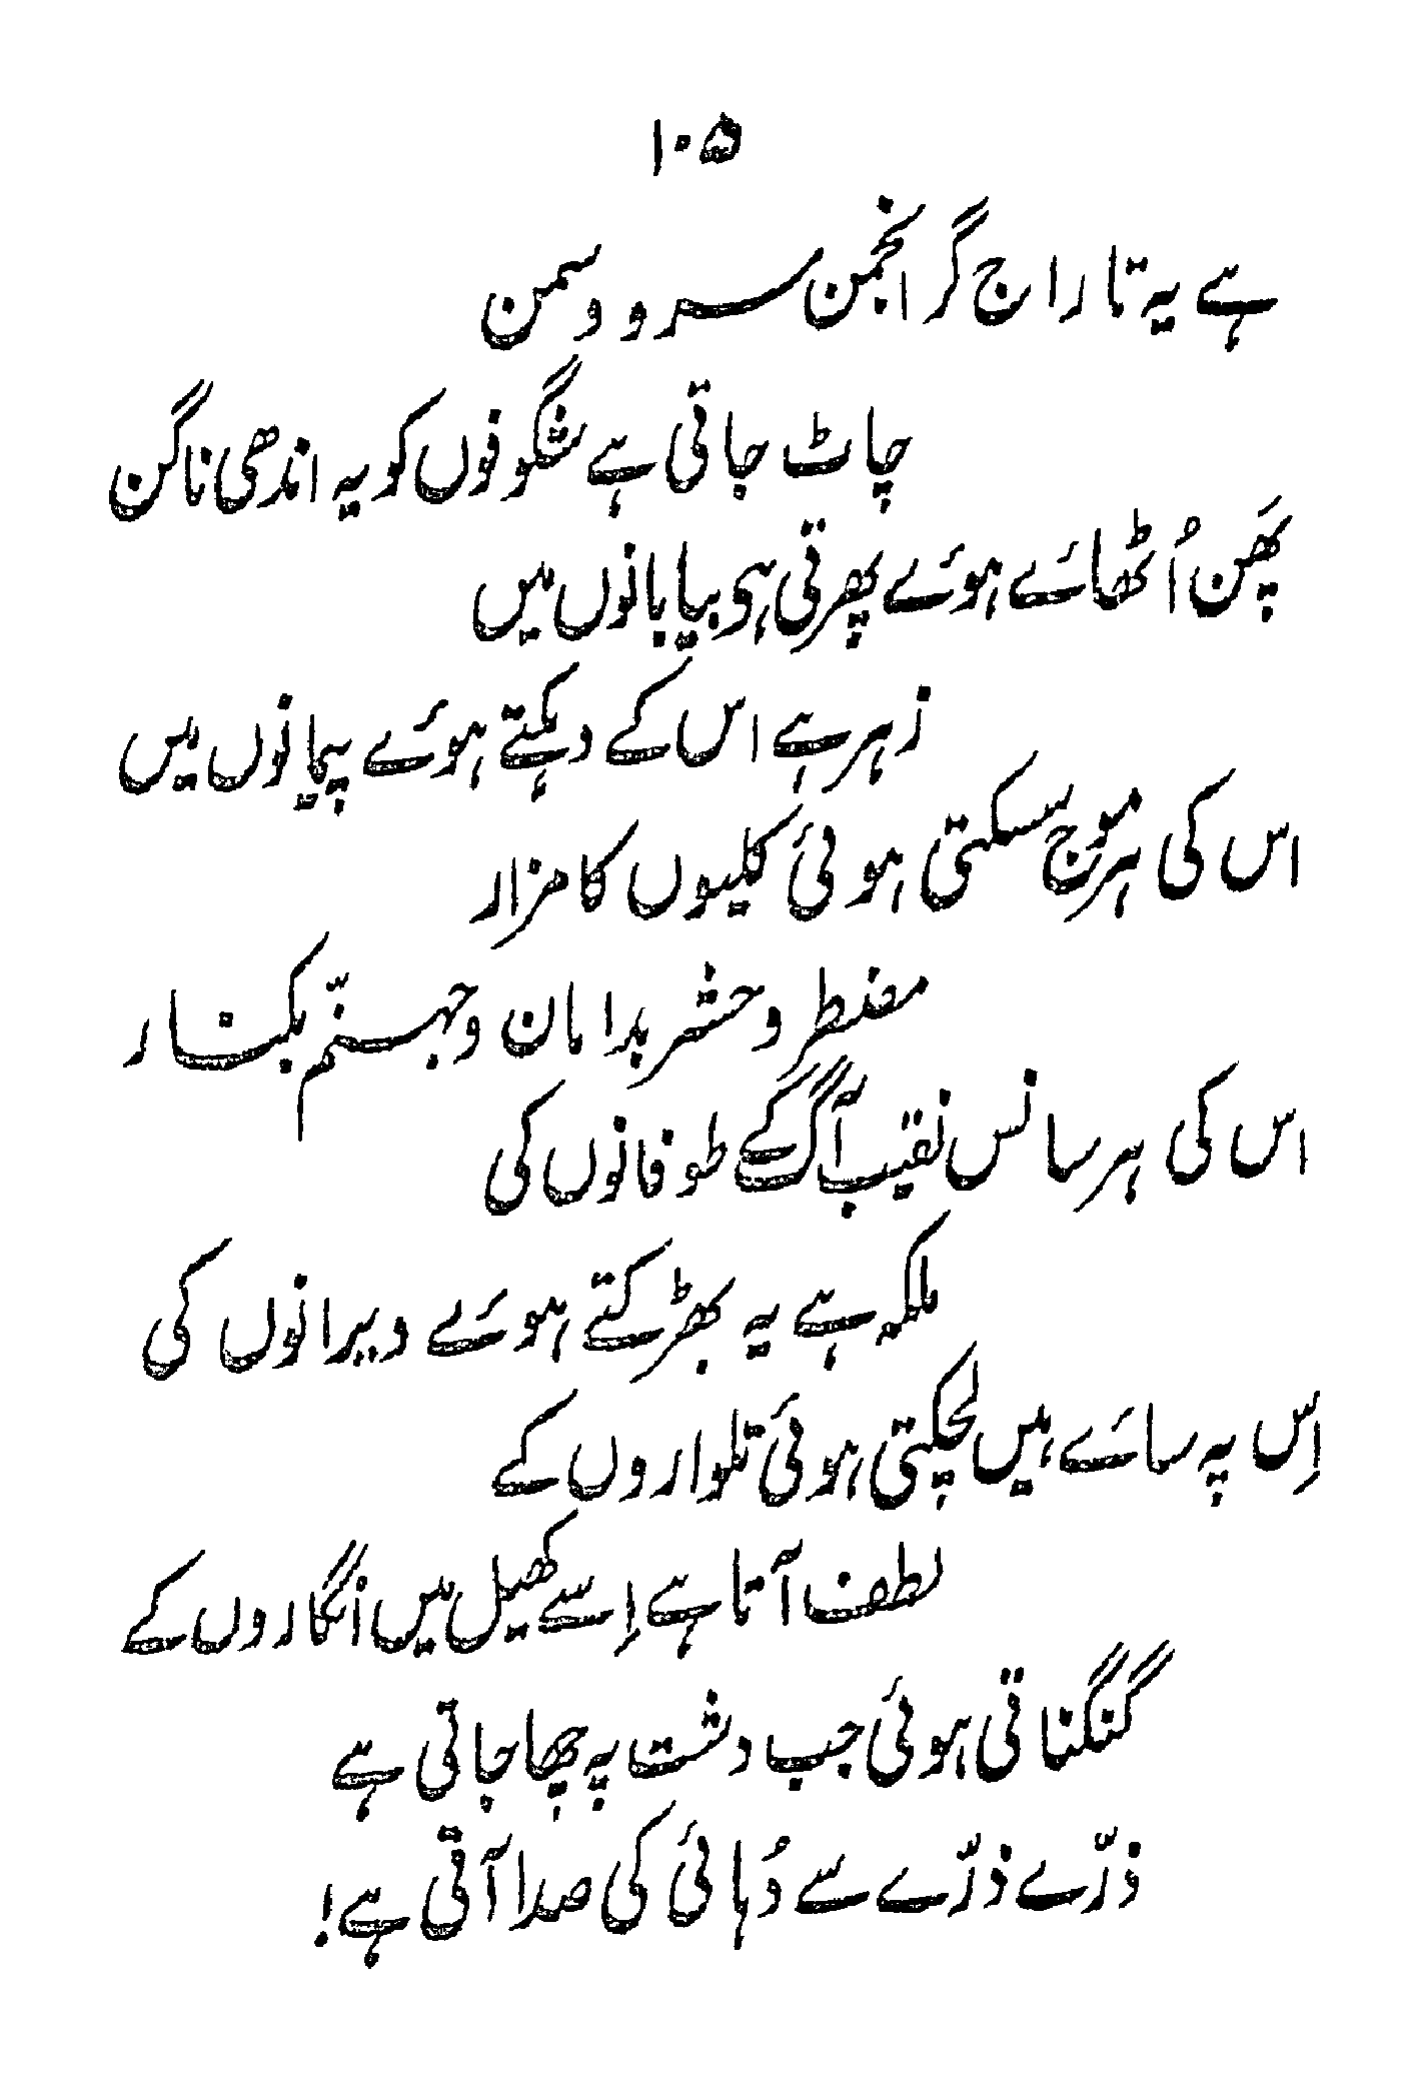 ۱۰۵
ہے یہ تاراج گر انجمن سرو و سمن
چاٹ جاتی ہے شگوفوں کو یہ اندھی ناگن
پَھن اُٹھائے ہوئے پھرتی ہی بیابانوں میں
زہر ہے اس کے دہکتے ہوئے پیمانوں میں
اس کی ہر موج سسکتی ہوئی کلیوں کا مزار
مضطر و حشر بداماں و جہنّم بکنار
اس کی ہر سانس نقیب آگ کے طوفانوں کی
ملکہ ہے یہ بھڑکتے ہوئے ویرانوں کی
اِس پہ سائے ہیں لچکتی ہوئی تلواروں کے
لطف آتا ہے اِسے کھیل میں انگاروں کے
گنگناتی ہوئی جب دشت پہ چھا جاتی ہے
ذرّے ذرّے سے دُہائی کی صدا آتی ہے!